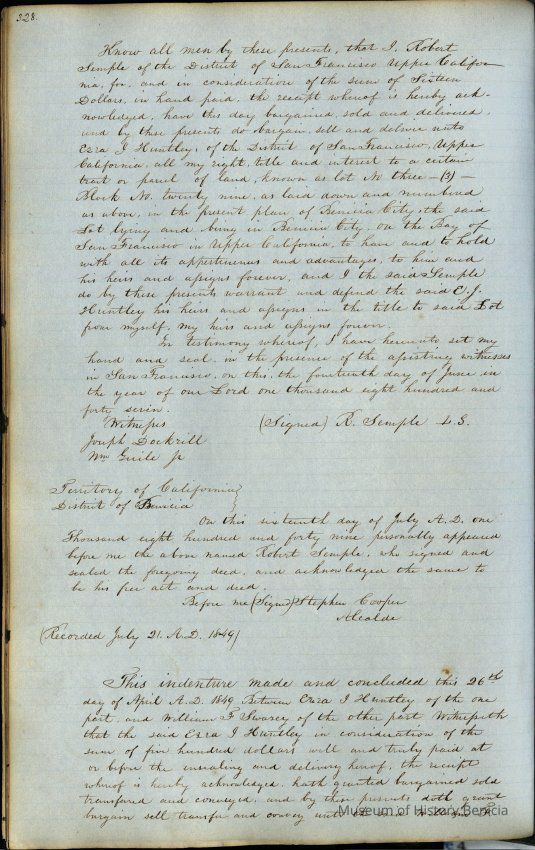 328.
Know all men by these presents, that I, Robert
Semple of the District of San Francisco Upper Califor
nia, for, and in consideration of the sum of Sixteen
Dollars, in hand paid, the receipt whereof is hereby ack-
nowledged, have this day bargained, sold and delivered,
and by these presents do bargain, sell and deliver unto
Ezra I Huntley, of the District of San Francisco, Upper
California, all my right, title and interest to a certain
tract or parcel of land, known as lot No three — (3) —
Block No. twenty nine, as laid down and numbered
as above, in the present plan of Benicia City, the said
Lot lying and being in Benicia City, on the Bay of
San Francisco in Upper California, to have and to hold
with all its appertinences and advantages, to him and
his heirs and assigns forever, and I the said Semple
do by these presents warrant and defend the said E. J.
Huntley his heirs and assigns, in the title to said Lot
from myself, my heirs and assigns forever.
In testimony whereof, I have hereunto set my
hand and seal, in the presence of the assisting witnesses
in San Francisco, on this, the fourteenth day of June in
the year of our Lord one thousand eight hundred and
forty seven.
Witnesses (Signed) R. Semple L.S.
Joseph Dockrill
Wm Guile Jr
Territory of California }
District of Benicia }
On this sixteenth day of July A.D. one
Thousand eight hundred and forty nine personally appeared
before me the above named Robert Semple, who signed and
sealed the foregoing deed, and acknowledged the same to
be his free act and deed.
Before me (Signed) Stephen Cooper
Alcalde
(Recorded July 21. A.D. 1849)
This indenture made and concluded this 26th
day of April A.D. 1849 Between Ezra I Huntley of the one
part, and William F Swasey of the other part Witnesseth
that the said Ezra I Huntley in consideration of the
sum of five hundred dollars well and truly paid at
or before the unsealing and delivery hereof, the receipt
whereof is hereby acknowledged, hath granted bargained sold
transfered and conveyed, and by these presents doth grant
bargain sell transfer and convey unto the said
Museum of History Benicia